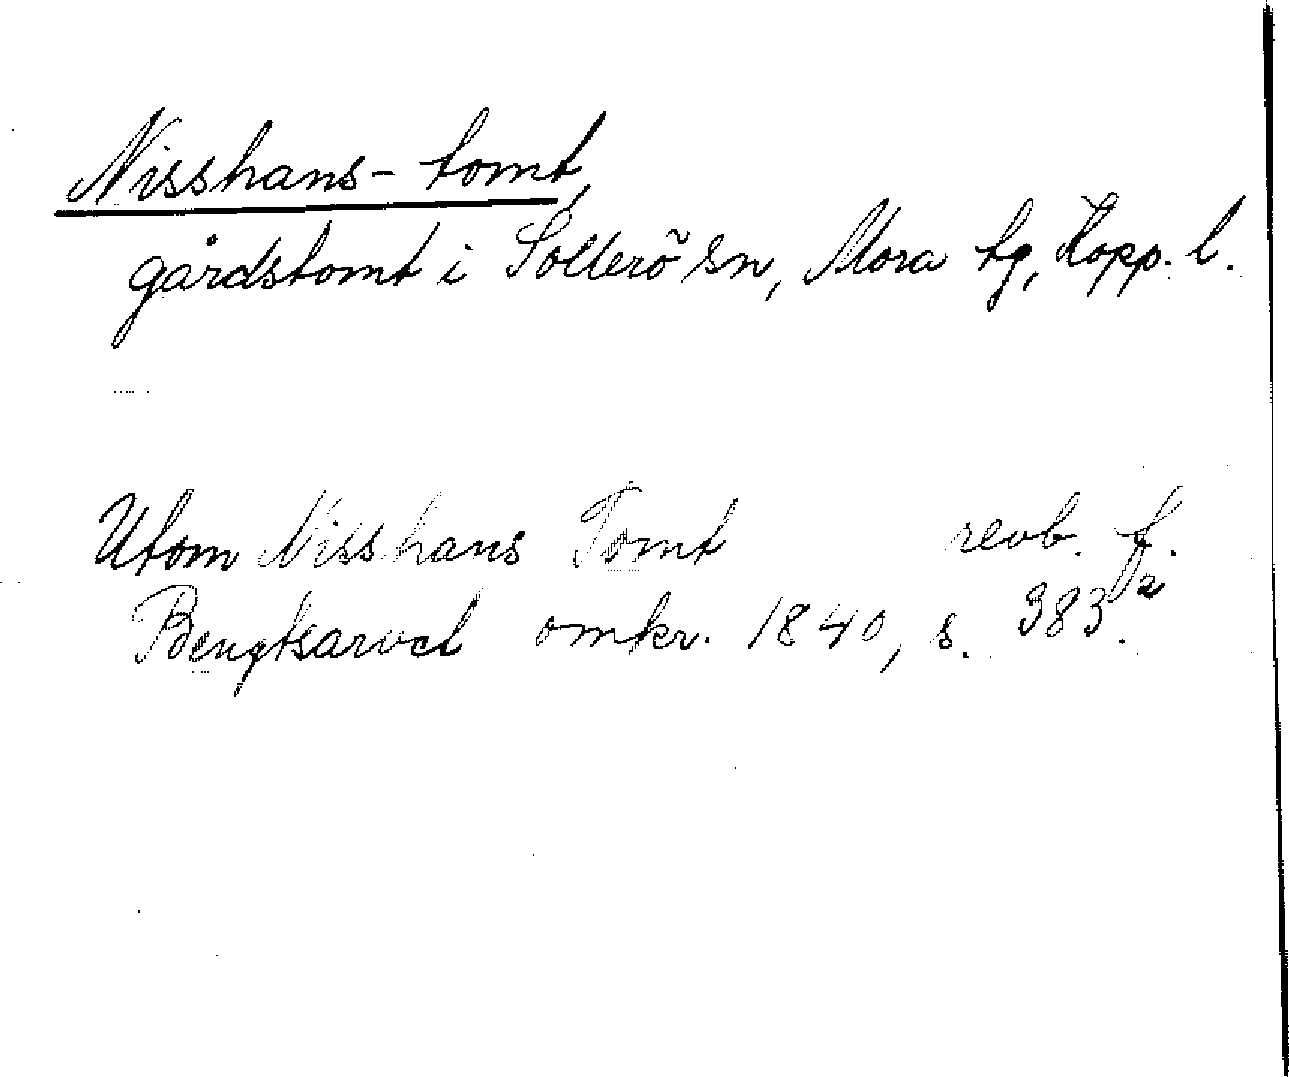 Nisshans-tomt,
gårdstomt i Sollerö sn, Mora tg, Kopp. l.
Utom Nisshans Tomt revb. f.
Bengtsarvet omkr. 1840, s. 383.